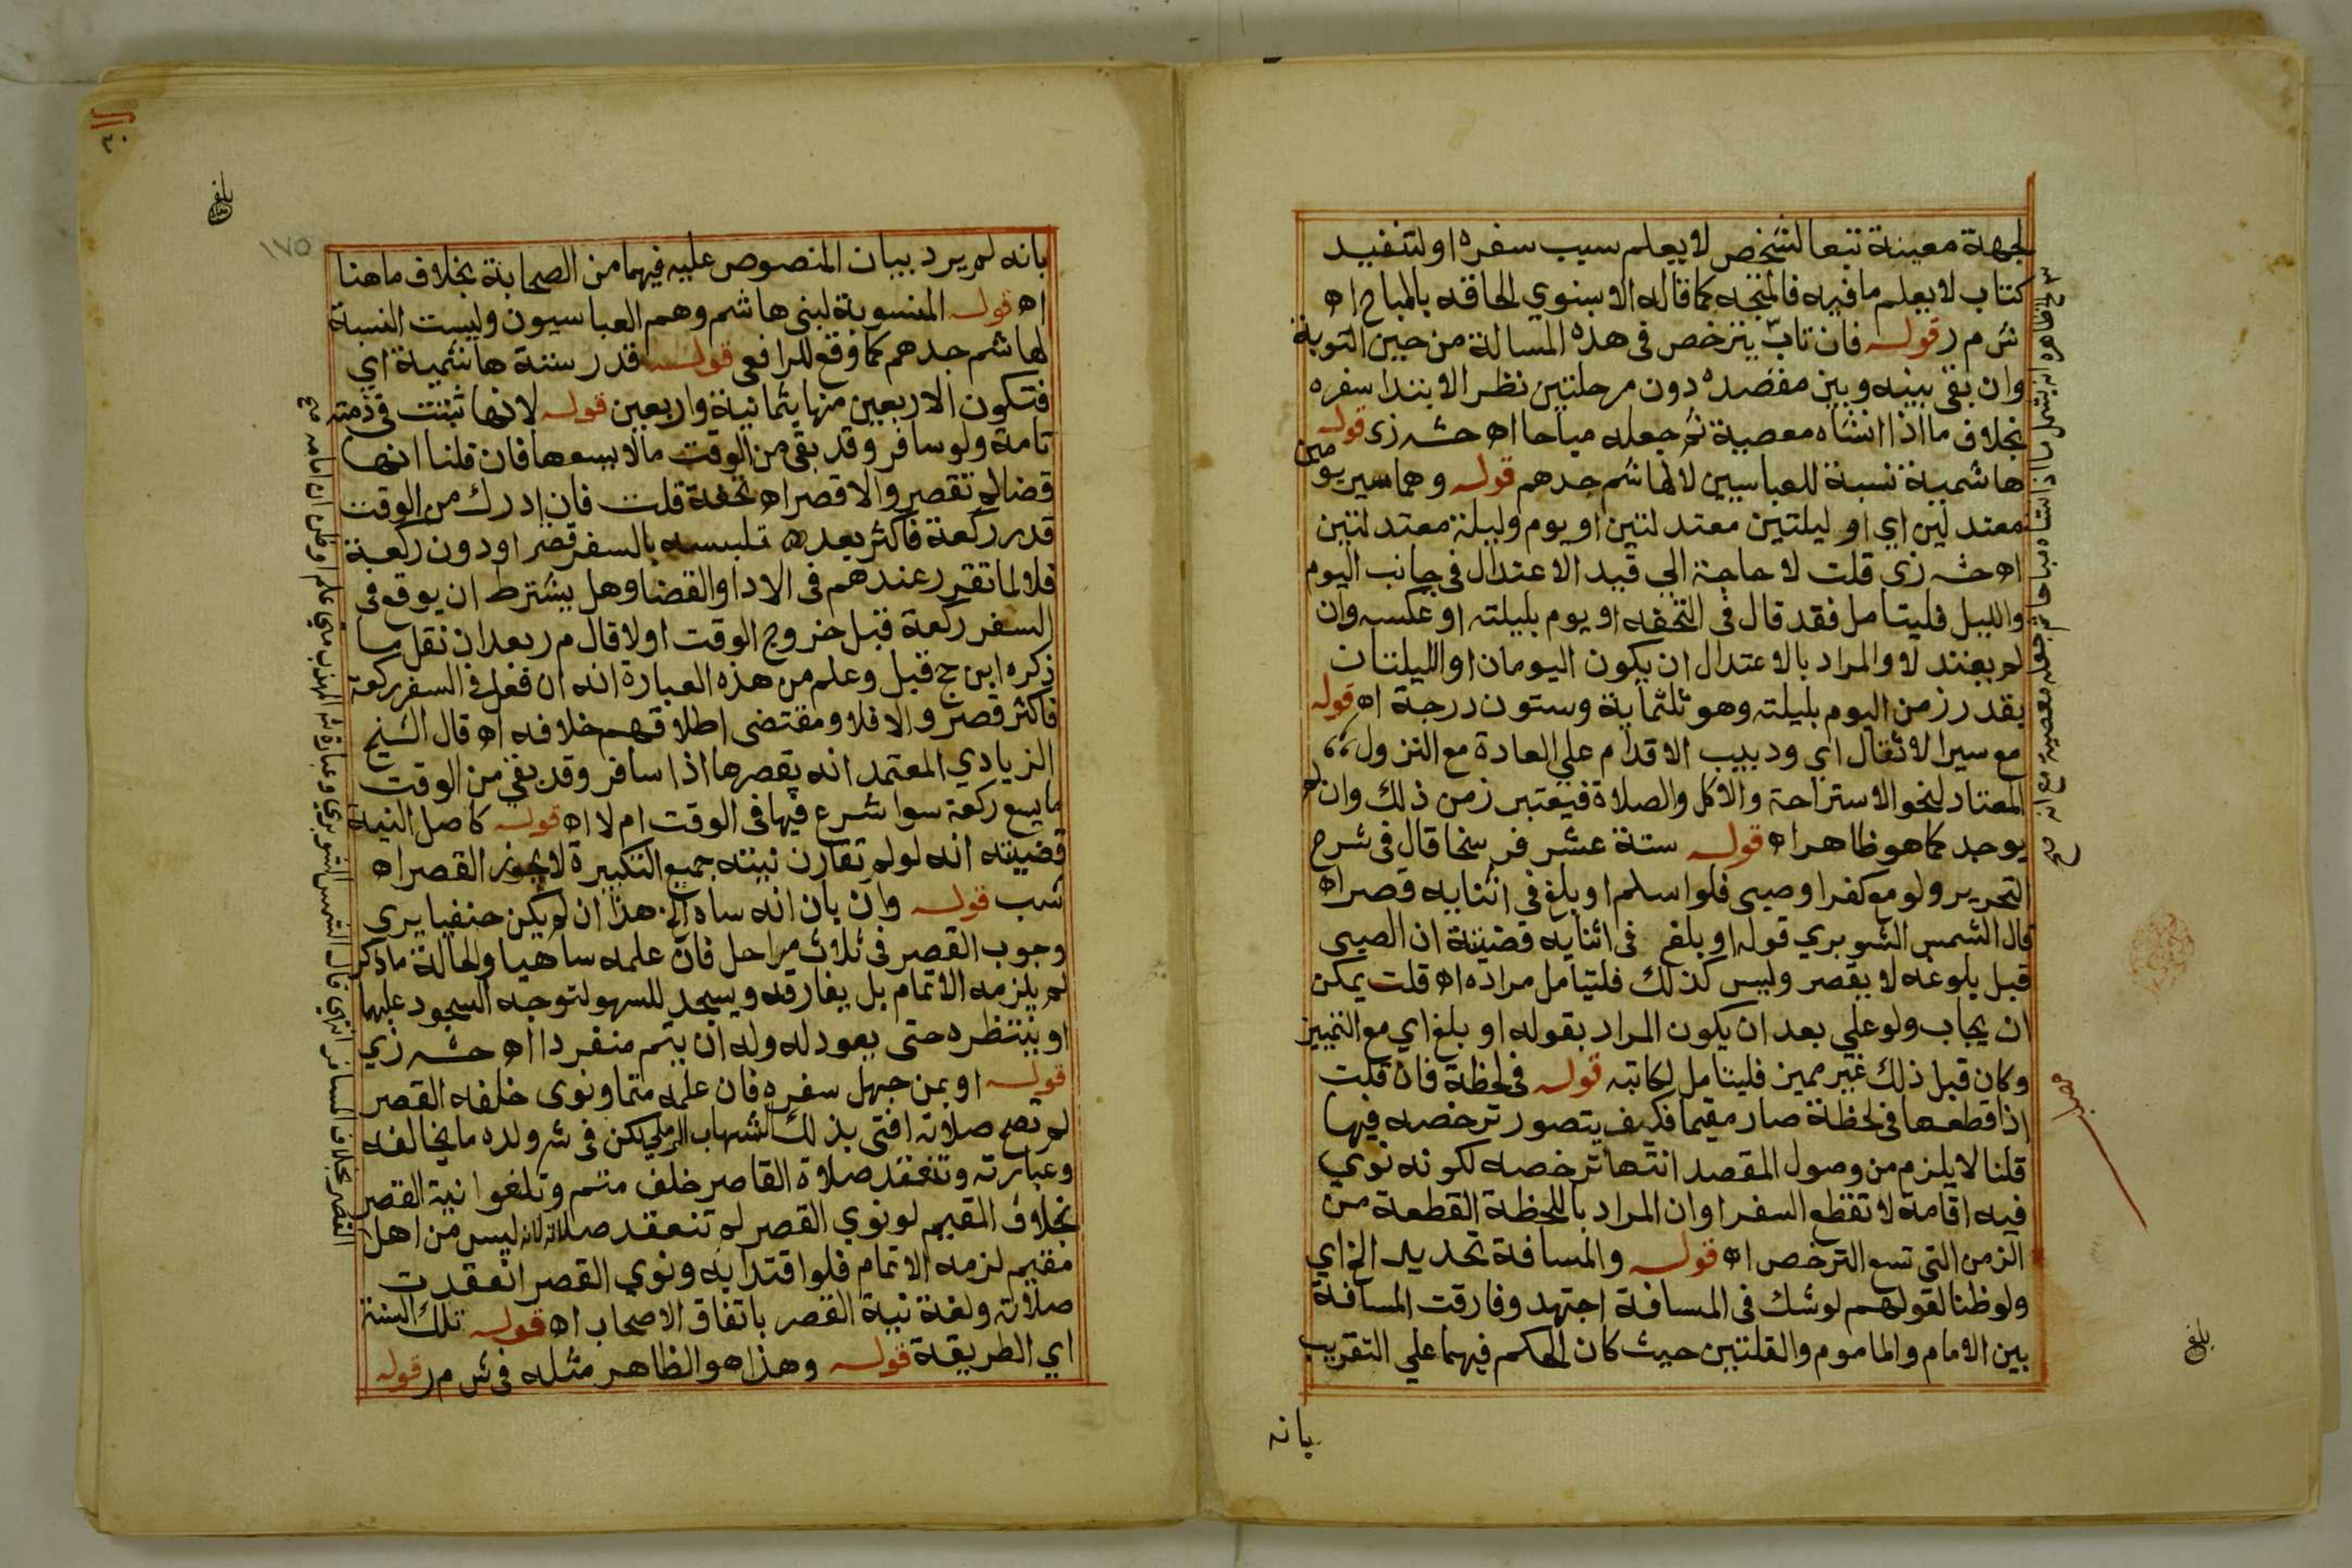 لجهة معينة تبعا لشخص لا يعلم سبب سفره او لتنفيد
كتاب لا يعلم ما فيه فالمتجه كما قاله الاسنوي الحاقه بالمباح اه
ش م ر قوله فان تاب يترخص في هذه المسالة من حين التوبة
وان بقي بينه وبين مقصده دون مرحلتين نظر الابتدا سفره
بخلاف ما اذا انشاه معصية ثم جعله مباحا اه حشـ زى قوله
هاشمية نسبة للعباسيين لا لهاشم جدهم قوله وهما سير يومين
معتدلين اي او ليلتين معتدلتين او يوم وليلة معتدلتين
اه حشـ زي قلت لا حاجة الي قيد الاعتدال في جانب اليوم
والليل فليتامل فقد قال في التحفه او يوم بليلته او عكسه وان
لم يعتدلا والمراد بالاعتدال ان يكون اليومان او الليلتان
بقدر زمن اليوم بليلته وهو ثلثماية وستون درجة اه قوله
مع سير الاثقال اي ودبيب الاقدام علي العادة مع النزول
المعتاد لنحو الاستراحة والاكل والصلاة فيعتبر زمن ذلك وان لم
يوجد كما هو ظاهر اه قوله ستة عشر فرسخا قال في شرح
التحرير ولو مع كفر او صبى فلو اسلم او بلغ في اثنايه قصر اه
قال الشمس الشوبري قوله او بلغ في اثنايه قضيته ان الصبى
قبل بلوغه لا يقصر وليس كذلك فليتامل مراده اه قلت يمكن
ان يجاب ولو علي بعد ان يكون المراد بقوله او بلغ اي مع التمييز
وكان قبل ذلك غير مميز فليتامل لكاتبه قوله في لحظة فان قلت
اذا قطعها في لحظة صار مقيما فكيف يتصور ترخصه فيها
قلنا لا يلزم من وصول المقصد انتها ترخصه لكونه نوي
فيه اقامة لا تقطع السفر او ان المراد باللحظة القطعة من
الزمن التي تسع الترخص اه قوله والمسافة تحديد الخ اي
ولو ظنا لقولهم لو شك في المسافة اجتهد وفارقت المسافة
بين الامام والماموم والقلتين حيث كان الحكم فيهما علي التقريب
بانه
بلغ
بلغ
١٧٥
٣٠
بانه لم يرد بيان المنصوص عليه فيهما من الصحابة بخلاف ما هنا
اه قوله المنسوبة لبني هاشم وهم العباسيون وليست النسبة
لهاشم جدهم كما وقع للرافعي قوله قدر ستة هاشمية اي
فتكون الاربعين منها بثمانية واربعين قوله لانها ثبتت في ذمته
تامة ولو سافر وقد بقي من الوقت ما لا يسعها فان قلنا انها
قضا لم تقصر والا قصر اه تحفة قلت فان ادرك من الوقت
قدر ركعة فاكثر بعد تلبسه بالسفر قصر او دون ركعة
فلا لما تقرر عندهم في الادا والقضا وهل يشترط ان يوقع في
السفر ركعة قبل خروج الوقت اولا قال م ر بعد ان نقل ما
ذكره ابن ج قبل وعلم من هذه العبارة انه ان فعل في السفر ركعة
فاكثر قصر والا فلا ومقتضى اطلاقهم خلافه اه قال الشيخ
الزيادي المعتمد انه يقصرها اذا سافر وقد بقي من الوقت
ما يسع ركعة سوا شرع فيها في الوقت ام لا اه قوله كاصل النية
قضيته انه لو لم تقارن نيته جميع التكبيرة لا يجوز القصر اه
شب قوله وان بان انه ساه الخ هذا ان لم يكن حنفيا يرى
وجوب القصر في ثلاث مراحل فان علمه ساهيا والحالة ما ذكر
لم يلزمه الاتمام بل يفارقه ويسجد للسهو لتوجه السجود عليهما
او ينتظره حتى يعود له وله ان يتم منفردا اه حشـ زي
قوله او بمن جهل سفره فان علمه متما ونوى خلفه القصر
لم تصح صلاته افتى بذلك الشهاب الرملي لكن في شـ ولده ما يخالفه
وعبارته وتنعقد صلاة القاصر خلف متم وتلغوا نية القصر
بخلاف المقيم لو نوي القصر لم تنعقد صلاته لانه ليس من اهل
مقيم لزمه الاتمام فلو اقتدا به ونوي القصر انعقدت
صلاته ولغة نية القصر باتفاق الاصحاب اه قوله تلك السنة
اي الطريقة قوله وهذا هو الظاهر مثله في ش م ر قوله